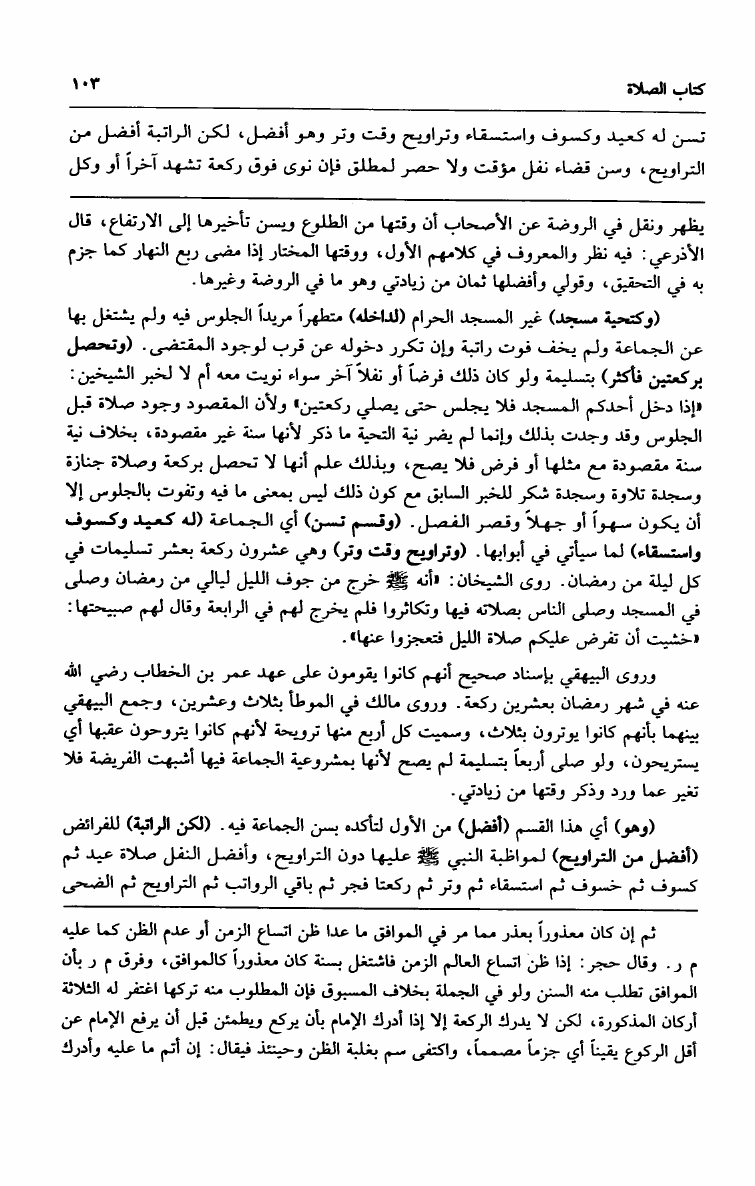 كتاب الصلاة ١٠٣
تسن له كعيد وكسوف واستسقاء وتراويح وقت وتر وهو أفضل، لكن الراتبة أفضل من
التراويح، وسن قضاء نفل مؤقت ولا حصر لمطلق فإن نوى فوق ركعة تشهد آخراً أو وكل
يظهر ونقل في الروضة عن الأصحاب أن وقتها من الطلوع ويسن تأخيرها إلى الارتفاع، قال
الأذرعي: فيه نظر والمعروف في كلامهم الأول، ووقتها المختار إذا مضى ربع النهار كما جزم
به في التحقيق، وقولي وأفضلها ثمان من زيادتي وهو ما في الروضة وغيرها.
(وكتحية مسجد) غير المسجد الحرام (لداخله) متطهراً مريداً الجلوس فيه ولم يشتغل بها
عن الجماعة ولم يخف فوت راتبة وإن تكرر دخوله عن قرب لوجود المقتضى. (وتحصل
بركعتين فأكثر) بتسليمة ولو كان ذلك فرضاً أو نفلاً آخر سواء نويت معه أم لا لخبر الشيخين:
«إذا دخل أحدكم المسجد فلا يجلس حتى يصلي ركعتين» ولأن المقصود وجود صلاة قبل
الجلوس وقد وجدت بذلك وإنما لم يضر نية التحية ما ذكر لأنها سنة غير مقصودة، بخلاف نية
سنة مقصودة مع مثلها أو فرض فلا يصح، وبذلك علم أنها لا تحصل بركعة وصلاة جنازة
وسجدة تلاوة وسجدة شكر للخبر السابق مع كون ذلك ليس بمعنى ما فيه وتفوت بالجلوس إلا
أن يكون سهواً أو جهلاً وقصر الفصل. (وقسم تسن) أي الجماعة (له كعيد وكسوف
واستسقاء) لما سيأتي في أبوابها. (وتراويح وقت وتر) وهي عشرون ركعة بعشر تسليمات في
كل ليلة من رمضان. روى الشيخان: «أنه ﷺ خرج من جوف الليل ليالي من رمضان وصلى
في المسجد وصلى الناس بصلاته فيها وتكاثروا فلم يخرج لهم في الرابعة وقال لهم صبيحتها:
«خشيت أن تفرض عليكم صلاة الليل فتعجزوا عنها».
وروى البيهقي بإسناد صحيح أنهم كانوا يقومون على عهد عمر بن الخطاب رضي الله
عنه في شهر رمضان بعشرين ركعة. وروى مالك في الموطأ بثلاث وعشرين، وجمع البيهقي
بينهما بأنهم كانوا يوترون بثلاث، وسميت كل أربع منها ترويحة لأنهم كانوا يتروحون عقبها أي
يستريحون، ولو صلى أربعاً بتسليمة لم يصح لأنها بمشروعية الجماعة فيها أشبهت الفريضة فلا
تغير عما ورد وذكر وقتها من زيادتي.
(وهو) أي هذا القسم (أفضل) من الأول لتأكده بسن الجماعة فيه. (لكن الراتبة) للفرائض
(أفضل من التراويح) لمواظبة النبي ﷺ عليها دون التراويح، وأفضل النفل صلاة عيد ثم
كسوف ثم خسوف ثم استسقاء ثم وتر ثم ركعتا فجر ثم باقي الرواتب ثم التراويح ثم الضحى
ثم إن كان معذوراً بعذر مما مر في الموافق ما عدا ظن اتساع الزمن أو عدم الظن كما عليه
م ر. وقال حجر: إذا ظن اتساع العالم الزمن فاشتغل بسنة كان معذوراً كالموافق، وفرق م ر بأن
الموافق تطلب منه السنن ولو في الجملة بخلاف المسبوق فإن المطلوب منه تركها اغتفر له الثلاثة
أركان المذكورة، لكن لا يدرك الركعة إلا إذا أدرك الإمام بأن يركع ويطمئن قبل أن يرفع الإمام عن
أقل الركوع يقيناً أي جزماً مصمماً، واكتفى سم بغلبة الظن وحينئذ فيقال: إن أتم ما عليه وأدرك